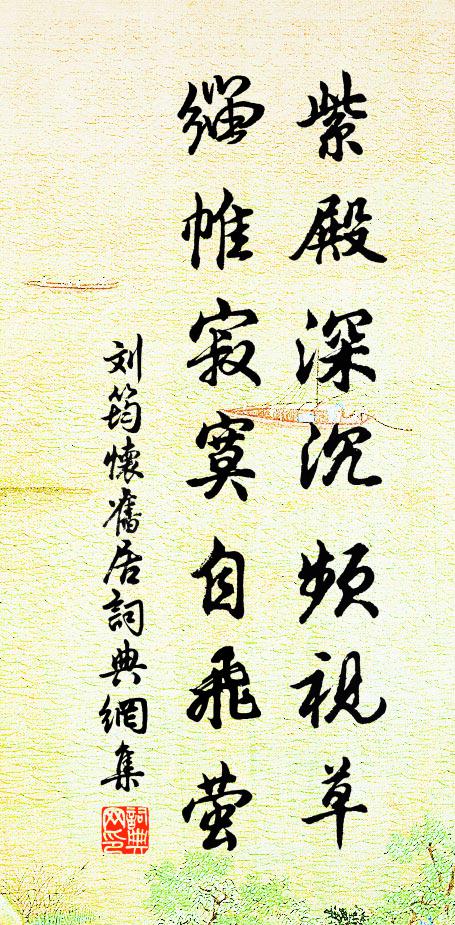 紫殿深沉頻視草
緇帷寂寞自飛萤
刘筠懷舊居詞典網集
詞典网印